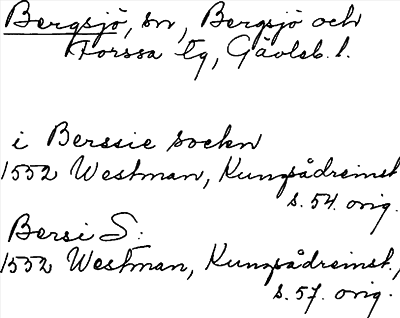 Bergsjö, sn, Bergsjö och
Forssa tg, Gävleb. l.
i Berssie sockn
1552 Westman, Kungsådreinst
s. 54. orig.
Bersi S:
1552 Westman, Kungsådreinst.,
s. 57. orig.